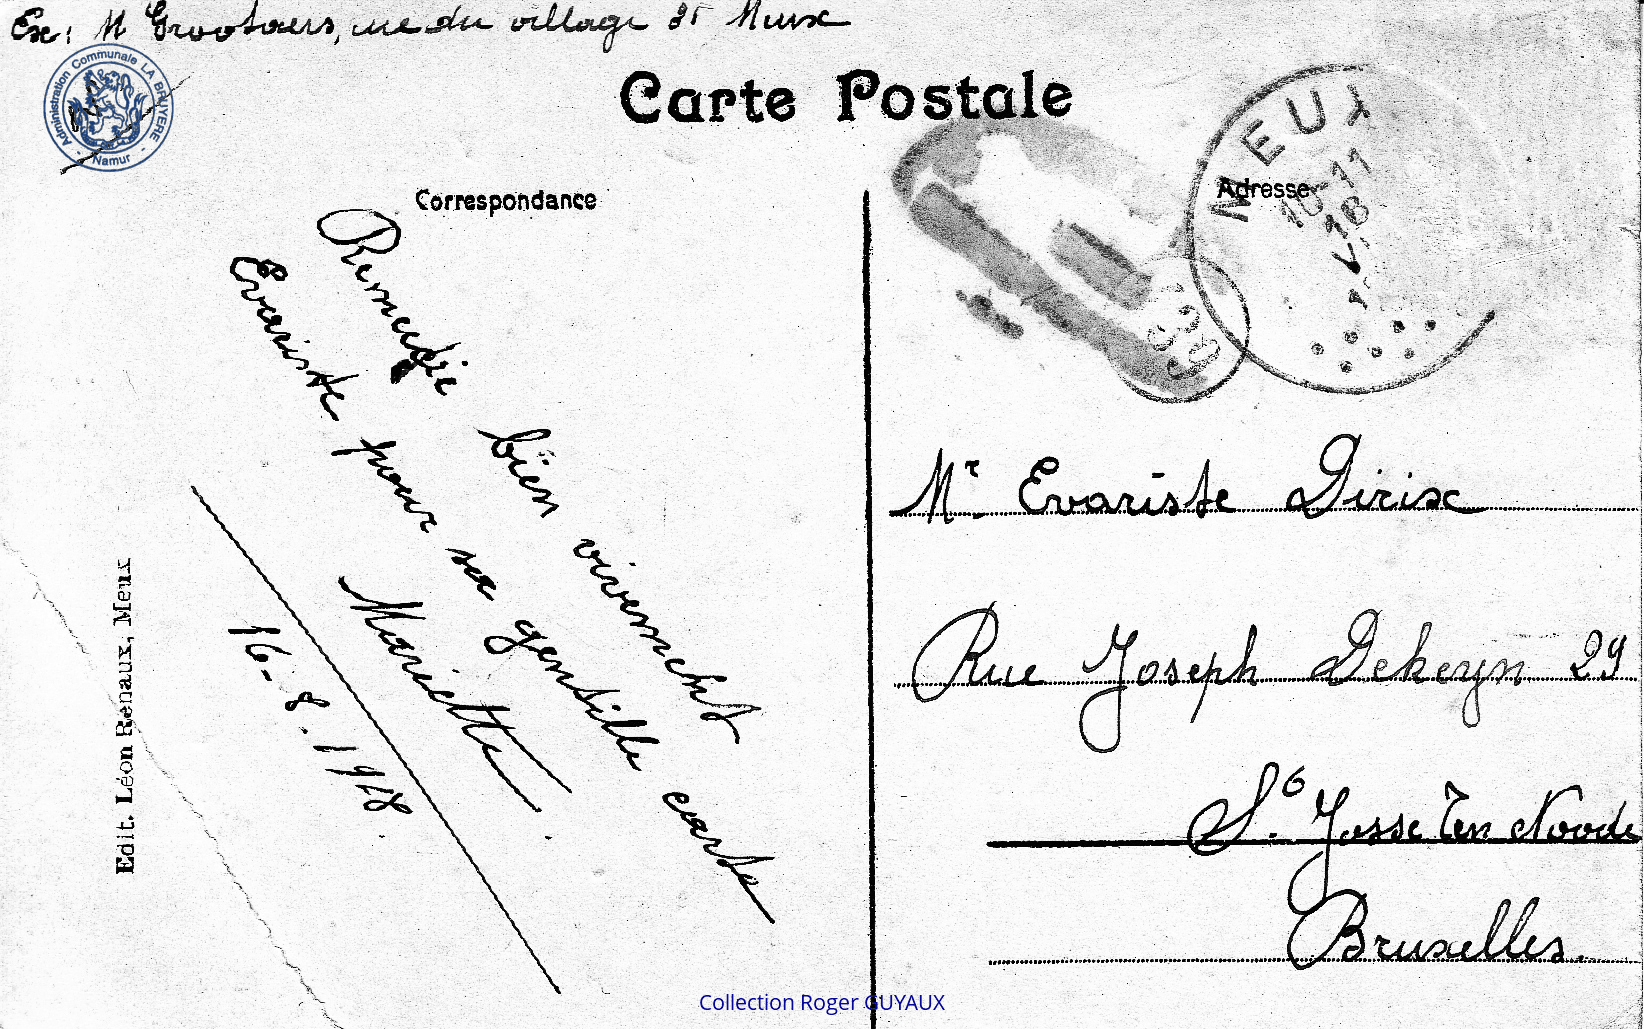 Ex: M Grootaers, rue du village 35 Meux
Administration Communale LA BRUYERE - Namur -
Carte Postale
Correspondance
Adresse
MEUX
10-11
18
V
Remercie bien vivement
Evariste pour sa gentille carte
Mariette.
16-8.1918.
Edit. Léon Renaux, Meux
Mr. Evariste Dirix
Rue Joseph Dekeyn 29
St. Josse Ten Noode
Bruxelles.
Collection Roger GUYAUX